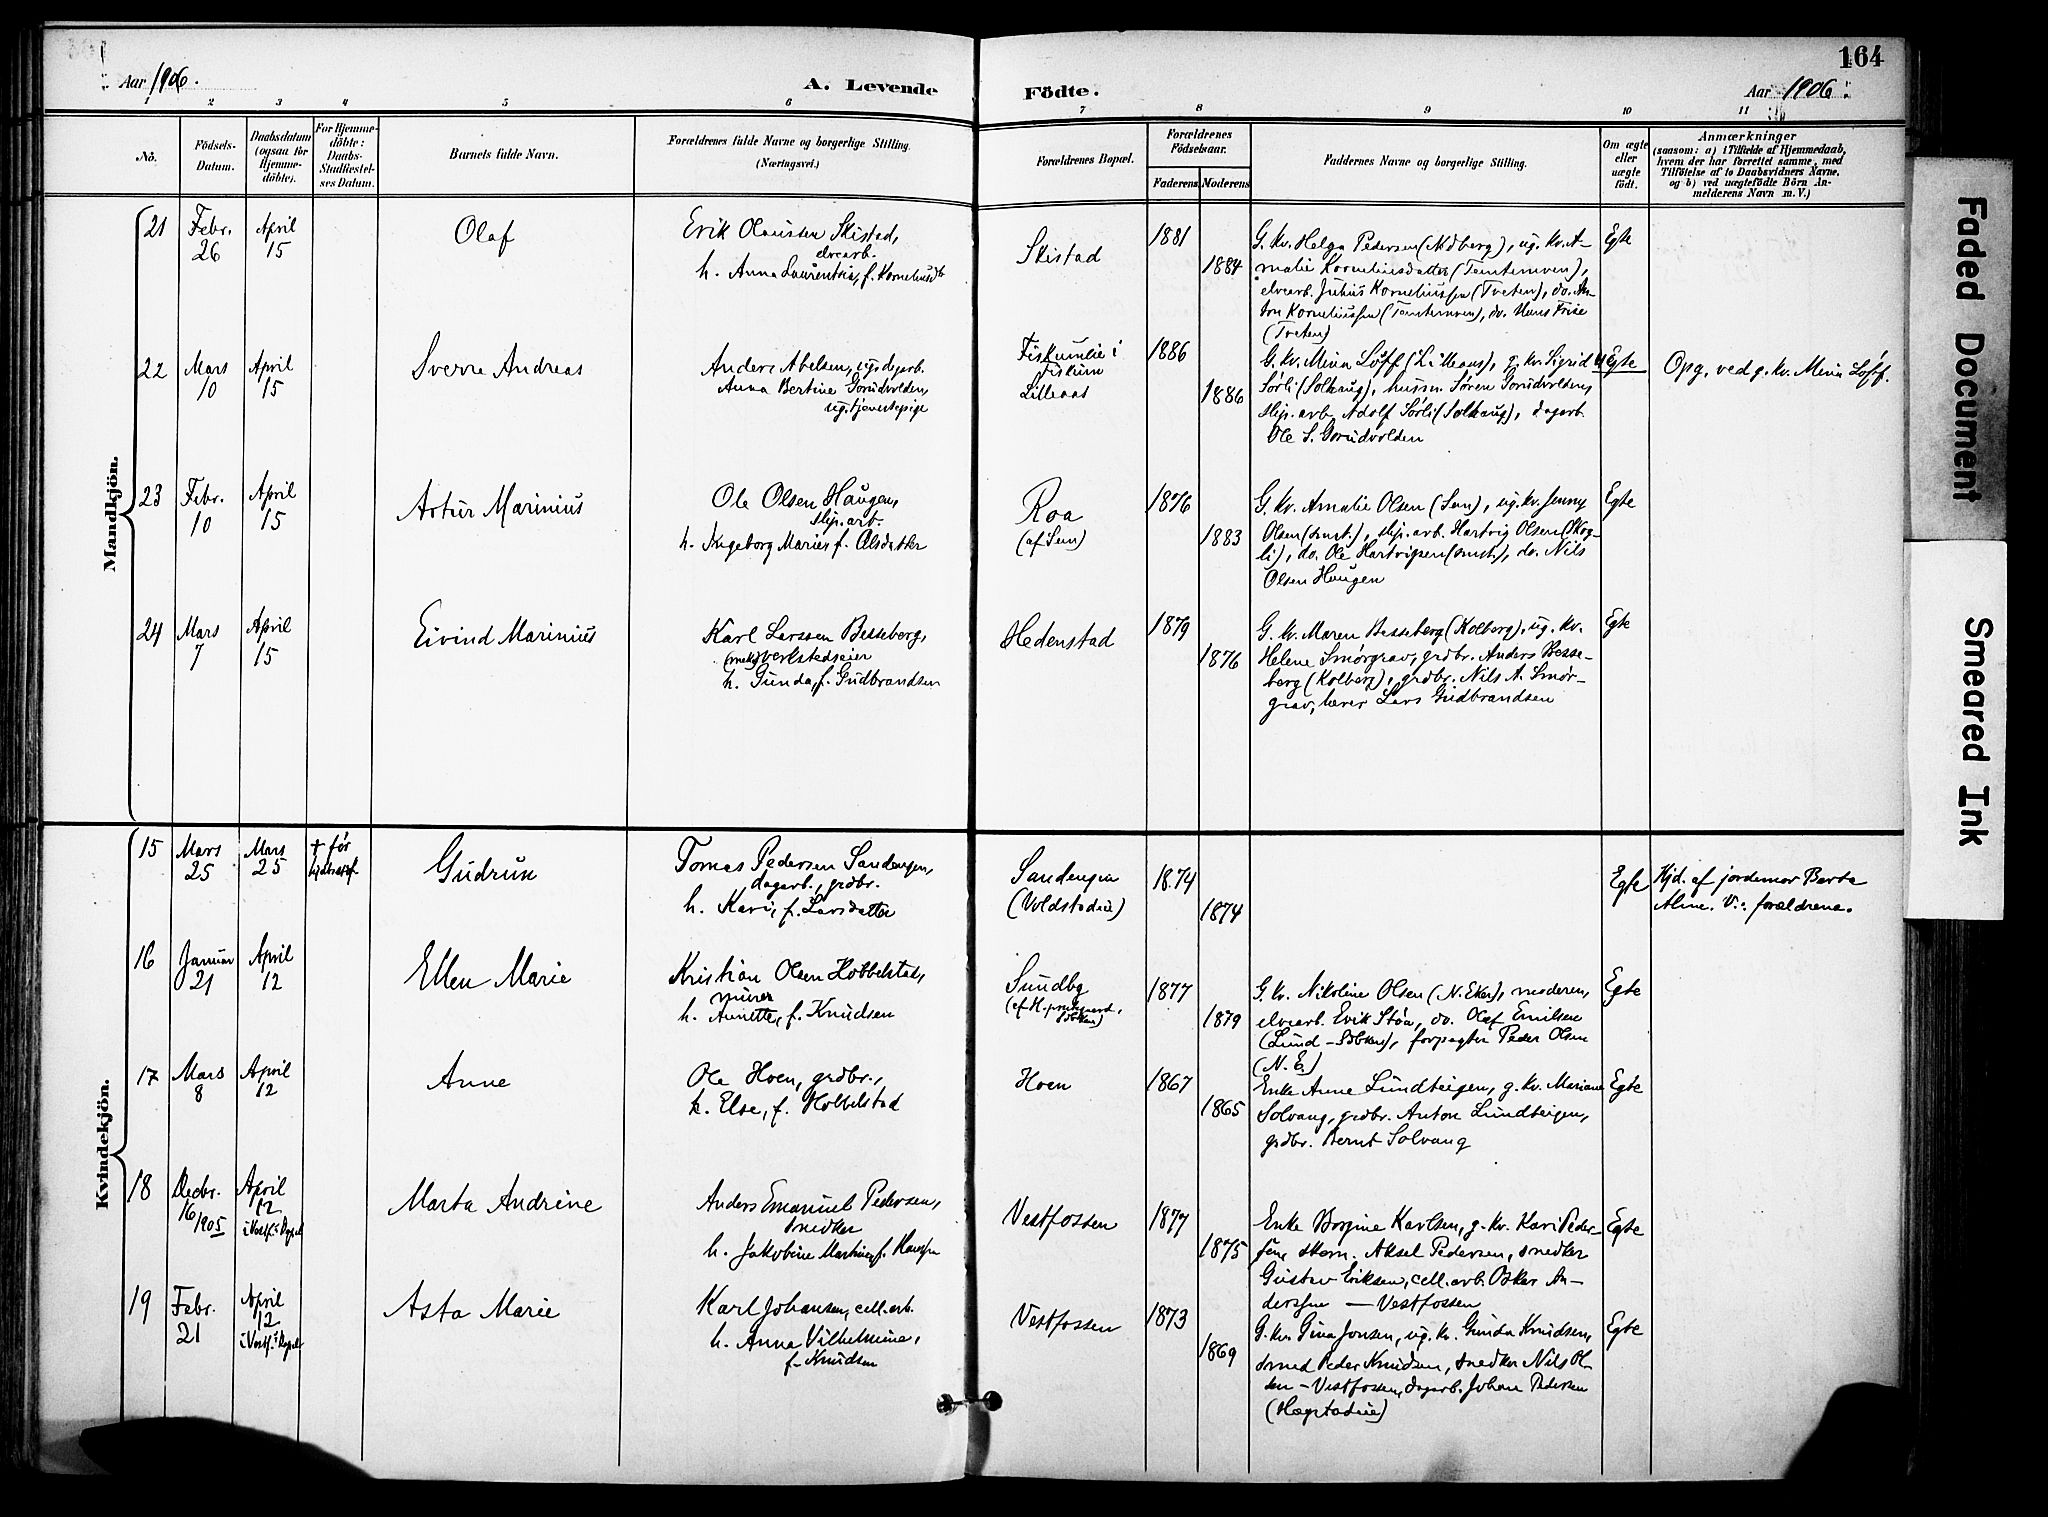 164
Aar 1906.
A. Levende Födte.
Aar 1906.
1 2 3 4 5 6 7 8 9 10 11
No.
Födsels-Datum.
Daabsdatum (ogsaa for Hjemmedöbte).
For Hjemmedöbte: Daabs-Stadfæstelses Datum.
Barnets fulde Navn.
Forældrenes fulde Navne og borgerlige Stilling.
(Næringsvei.)
Forældrenes Bopæl.
Forældrenes Födselsaar.
Faderens Moderens
Faddernes Navne og borgerlige Stilling.
Om ægte eller uægte födt.
Anmærkninger
(saasom: a) i Tilfælde af Hjemmedaab, hvem der har forrettet samme, med Tilföielse af to Daabsvidners Navne, og b) ved uægtefödte Börn Anmelderens Navn m. V.)
Mandkjön.
21 Febr. 26 April 15
Olaf
Erik Olausen Skistad,
elvearb.
h. Anna Laurentia, f. Kornelius
Skistad
1881
1884
G. kv. Helga Pedersen, ug. kv. A-
malie Korneliusdatter (Temtemoen),
elvearb. Julius Korneliussen (Tveten), do. An-
ton Korneliussen (Temtemoen), do. Hans Frise
(Tveten)
Egte
22 Mars 10 April 15
Sverre Andreas
Anders Abelsen, ugs. dagarb.
Anna Bertine Gorudvolden,
ug. tjenestepige
Fiskumlie i
Fiskum
Lilleaas
1886
1886
G. kv. Mina Løff (Lilleaas), g. kv. Sigrid
Sørli (Solhaug), husm. Søren Gorudvolden,
slip. arb. Adolf Sørli (Solhaug), dagarb.
Ole S. Gorudvolden
uEgte
Opg. ved g. kv. Mina Løff.
23 Febr. 10 April 15
Artur Marinius
Ole Olsen Haugen,
slip. arb.
h. Ingeborg Marie, f. Olsdatter
Roa
(af Sem)
1876
1883
G. kv. Amalie Olsen (Sem), ug. kv. Jenny
Olsen (smst.), slip. arb. Hartvig Olsen (Skog-
li), do. Ole Hartvigsen (smst.), do. Nils
Olsen Haugen
Egte
24 Mars 7 April 15
Eivind Marinius
Karl Larssen Besseberg,
(mek) verkstedseier
h. Gunda, f. Gudbrandsen
Hedenstad
1879
1876
G. kv. Maren Besseberg (Kolberg), ug. kv.
Helene Smørgrav, grdbr. Anders Besse-
berg (Kolberg), grdbr. Nils A. Smør-
grav, lærer Lars Gudbrandsen
Egte
Kvindekjön.
15 Mars 25 Mars 25 + før
Gudrun
Tomas Pedersen Sandengen,
dagarb., grdbr.
h. Kari, f. Larsdatter
Sandengen
(Voldstadeie)
1874
1874
Egte
Hjd. af jordemor Berte
Aline. V.: forældrene.
16 Januar 21 April 12
Ellen Marie
Kristian Olsen Hobbelstad,
murer
h. Annette, f. Knudsen
Sundby
1877
1879
G. kv. Nikoline Olsen (N. Eker), moderen,
elvearb. Erik Støa, do. Olaf Emilsen
(Lund – Sdbkn), forpagter Peder Olsen
(N. E.)
Egte
17 Mars 8 April 12
Anne
Ole Hoen, grdbr.,
h. Else, f. Hobbelstad
Hoen
1867
1865
Enke Anne Lundteigen, g. kv. Mariane
Solvang, grdbr. Anton Lundteigen,
grdbr. Bernt Solvang
Egte
18 Decbr. 16 1905 April 12
i Vestf. Kapel
Marta Andrine
Anders Emanuel Pedersen,
snedker
h. Jakobine Martine, f. Hanssen
Vestfossen
1877
1875
Enke Borgine Karlsen, g. kv. Kari Peder-
sen, skom. Aksel Pedersen, snedker
Gustav Eriksen, cell. arb. Oskar An-
derssen — Vestfossen
Egte
19 Febr. 21 April 12
i Vestf. Kapel
Asta Marie
Karl Johansen, cell. arb.
h. Anna Vilhelmine,
f. Knudsen
Vestfossen
1873
1869
G. kv. Gina Jonsen, ug. kv. Gunda Knudsen,
smed Peder Knudsen, snedker Nils Ol-
sen – Vestfossen, dagarb. Johan Pedersen
(Hægstadeie)
Egte
Faded Document
Smeared Ink